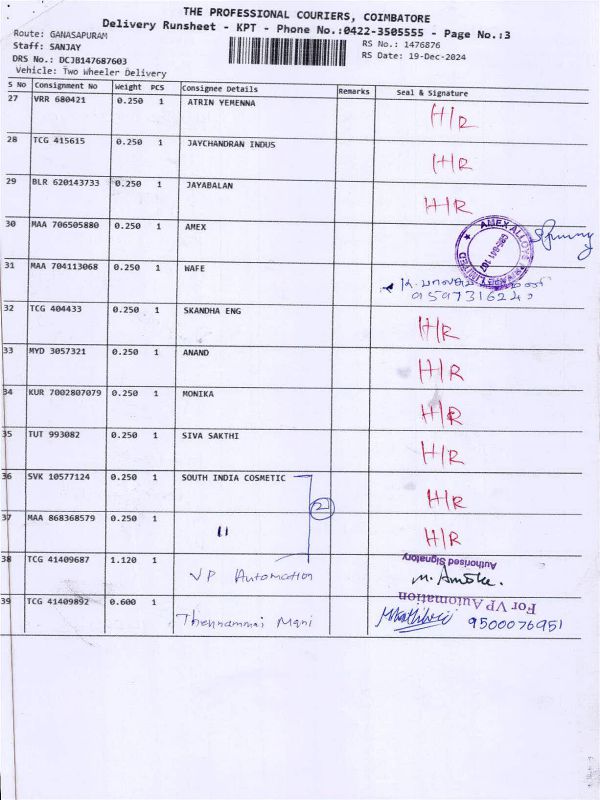 THE PROFESSIONAL COURIERS, COIMBATORE
Delivery Runsheet - KPT - Phone No.:0422-3505555 - Page No.:3
Route: GANASAPURAM
RS No.: 1476876
Staff: SANJAY
RS Date: 19-Dec-2024
DRS No.: DCJB147687603
Vehicle: Two Wheeler Delivery
S No Consignment No Weight PCS Consignee Details Remarks Seal & Signature
27 VRR 680421 0.250 1 ATRIN YEMENNA H/R
28 TCG 415615 0.250 1 JAYCHANDRAN INDUS H/R
29 BLR 620143733 0.250 1 JAYABALAN H/R
30 MAA 706505880 0.250 1 AMEX
AMEX ALLOYS PRIVATE LIMITED
641 107
31 MAA 704113068 0.250 1 WAFE
32 TCG 404433 0.250 1 SKANDHA ENG H/R
33 MYD 3057321 0.250 1 ANAND H/R
34 KUR 7002807079 0.250 1 MONIKA H/R
35 TUT 993082 0.250 1 SIVA SAKTHI H/R
36 SVK 10577124 0.250 1 SOUTH INDIA COSMETIC H/R
2
37 MAA 868368579 0.250 1 11 H/R
38 TCG 41409687 1.120 1 VP Automation
Authorised Signatory
For VP Automation
39 TCG 41409892 0.600 1 Thennammai Mani 9500076951